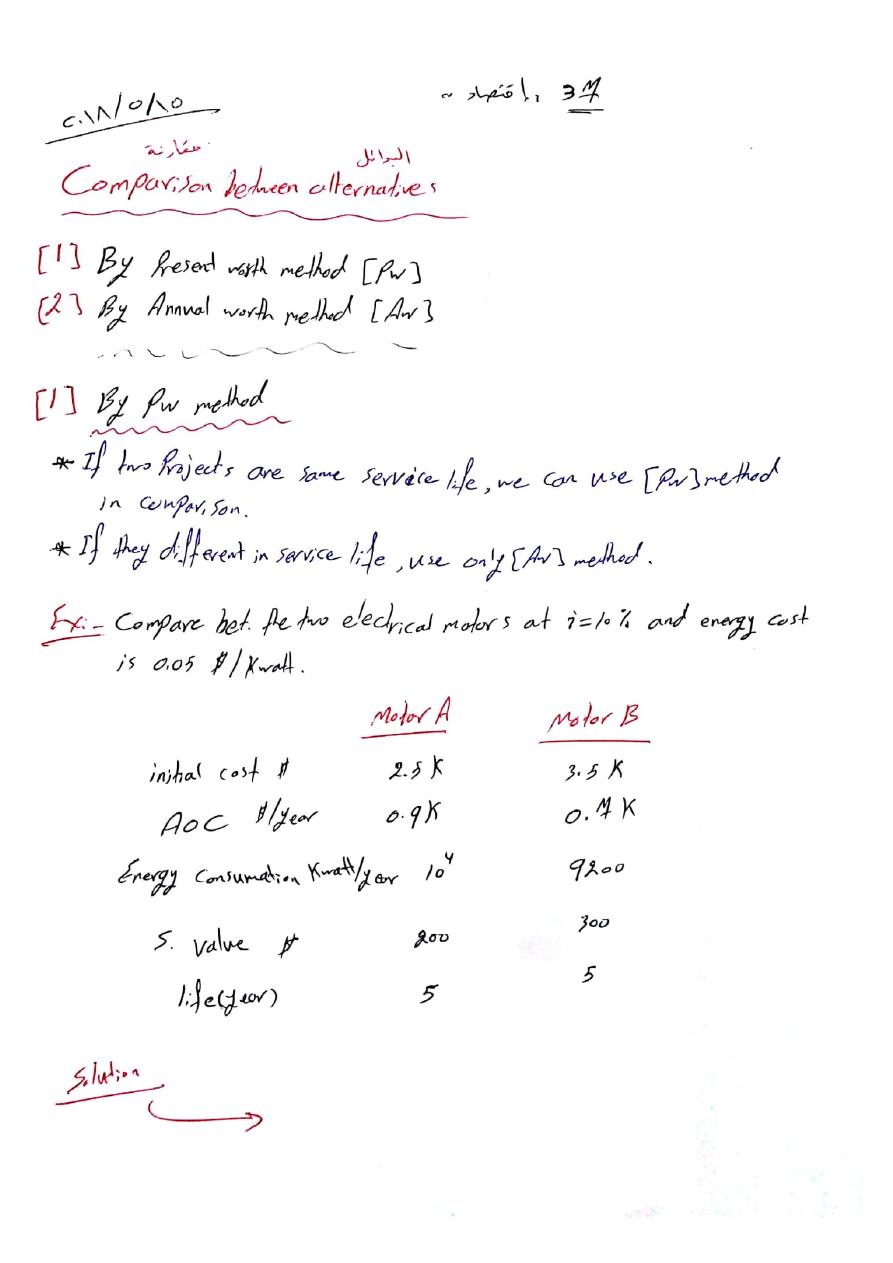 ٢٠١٨/٥/١٥
3M ,, إقتصاد ~
مقارنة البدائل
Comparison between alternatives
[1] By Present worth method [Pw]
[2] By Annual worth method [Aw]
[1] By Pw method
* If two Projects are same service life, we can use [Pw] method
in comparison.
* If they different in service life, use only [Aw] method.
Ex:- Compare bet. the two electrical motors at i=10% and energy cost
is 0.05 $/Kwatt.
Motor A Motor B
initial cost $ 2.5 K 3.5 K
AOC $/year 0.9K 0.7 K
Energy Consumation Kwatt/year 10⁴ 9200
S. value $ 200 300
life(year) 5 5
Solution